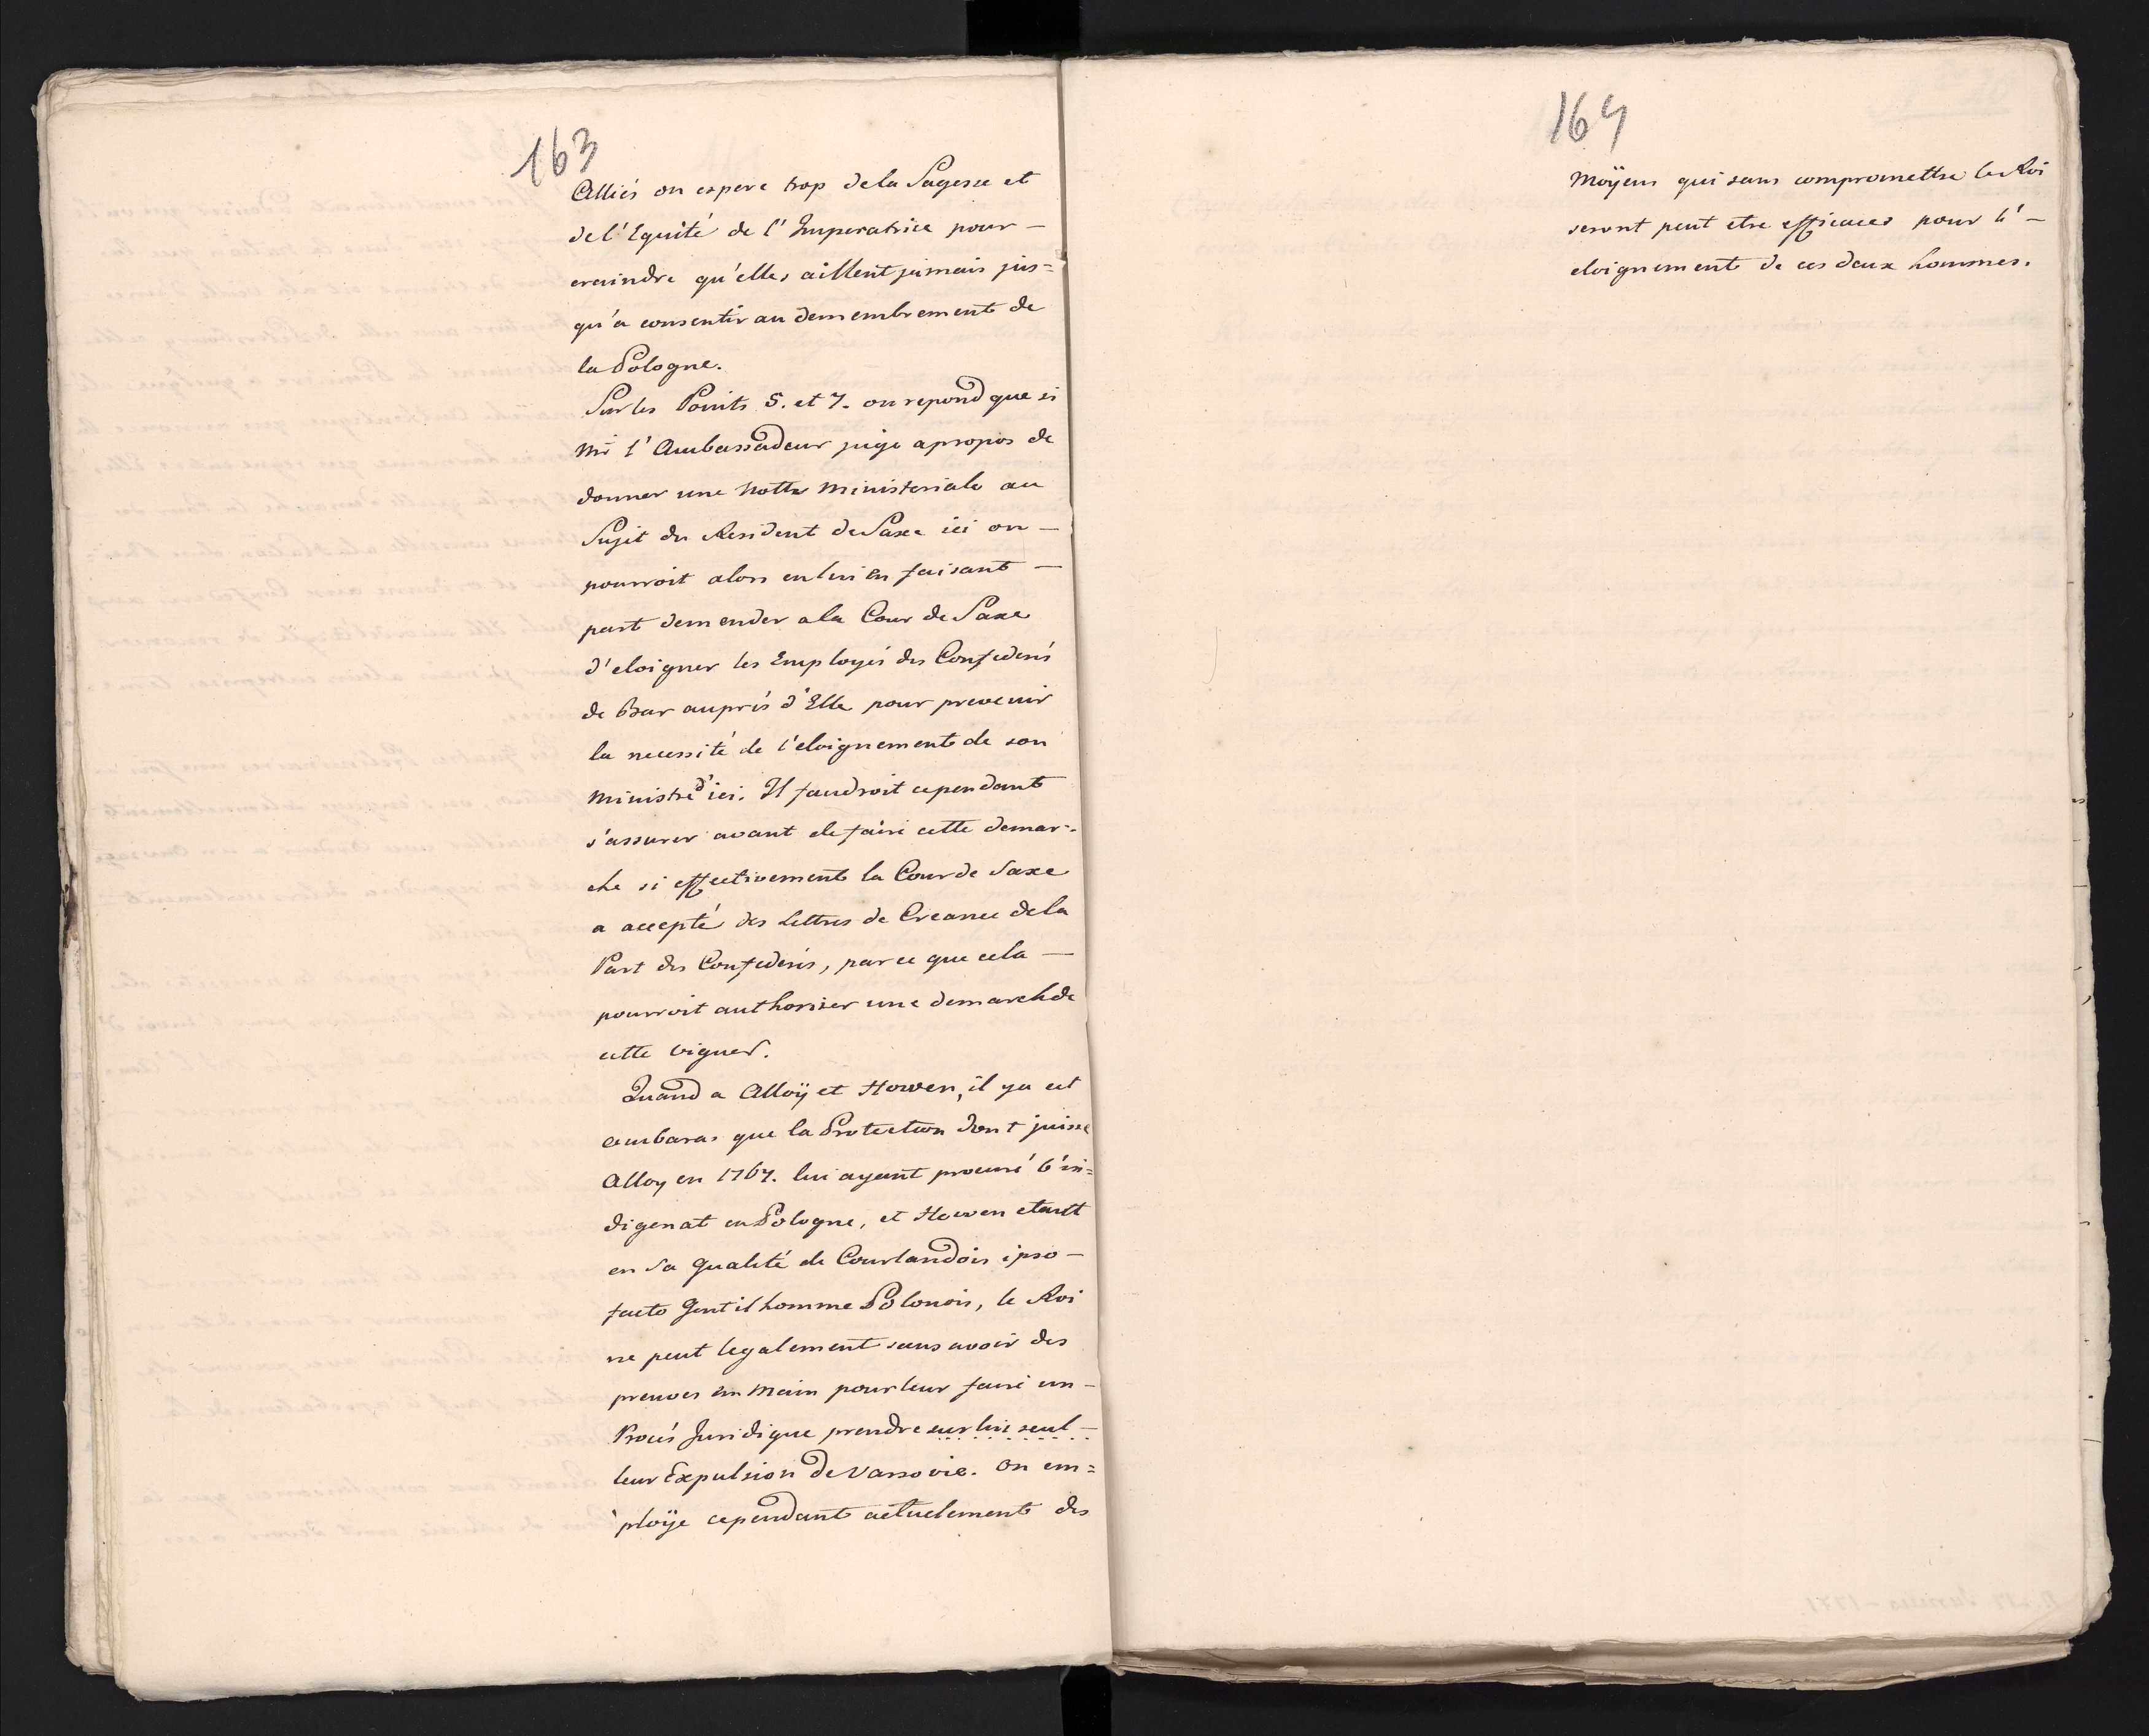 163
Alliés on espere trop de la Sagesse et
de l'Equité de l'Imperatrice pour —
craindre qu'elles aillent jamais jus=
qu'a consentir au demembrement de
la Pologne.
Sur les Points 5. et 7. on repond que si
Mr l'Ambassadeur juge apropos de
donner une Notte Ministeriale au
Sujet du Resident de Saxe ici on —
pourroit alors en lui en faisant —
part demender a la Cour de Saxe
d'eloigner les Employés des Confederés
de Bar auprés d'Elle pour prevenir
la necessité de l'eloignement de son
Ministre d'ici. Il faudroit cependant
s'assurer avant de faire cette demar=
che si effectivement la Cour de Saxe
a accepté des Lettres de Creance de la
Part des Confederés, parce que cela —
pourroit authoriser une demarche de
cette vigueur.
Quand a Alloÿ et Howen, il y a cet
embaras que la Protection dont juisse
Alloy en 1767. lui ayant procuré l'in=
digenat en Pologne, et Howen etant
en Sa Qualité de Courlandois ipso —
facto Gentilhomme Polonois, le Roi
ne peut legalement sans avoir des
preuves en Main pour leur faire un —
Procés Juridique prendre sur lui seul —
leur Expulsion de Varsovie. On em=
ploÿe cependant actuelement des
164
Moÿens qui sans compromettre le Roi
seront peut etre efficaces pour l'—
eloignement de ces deux hommes.